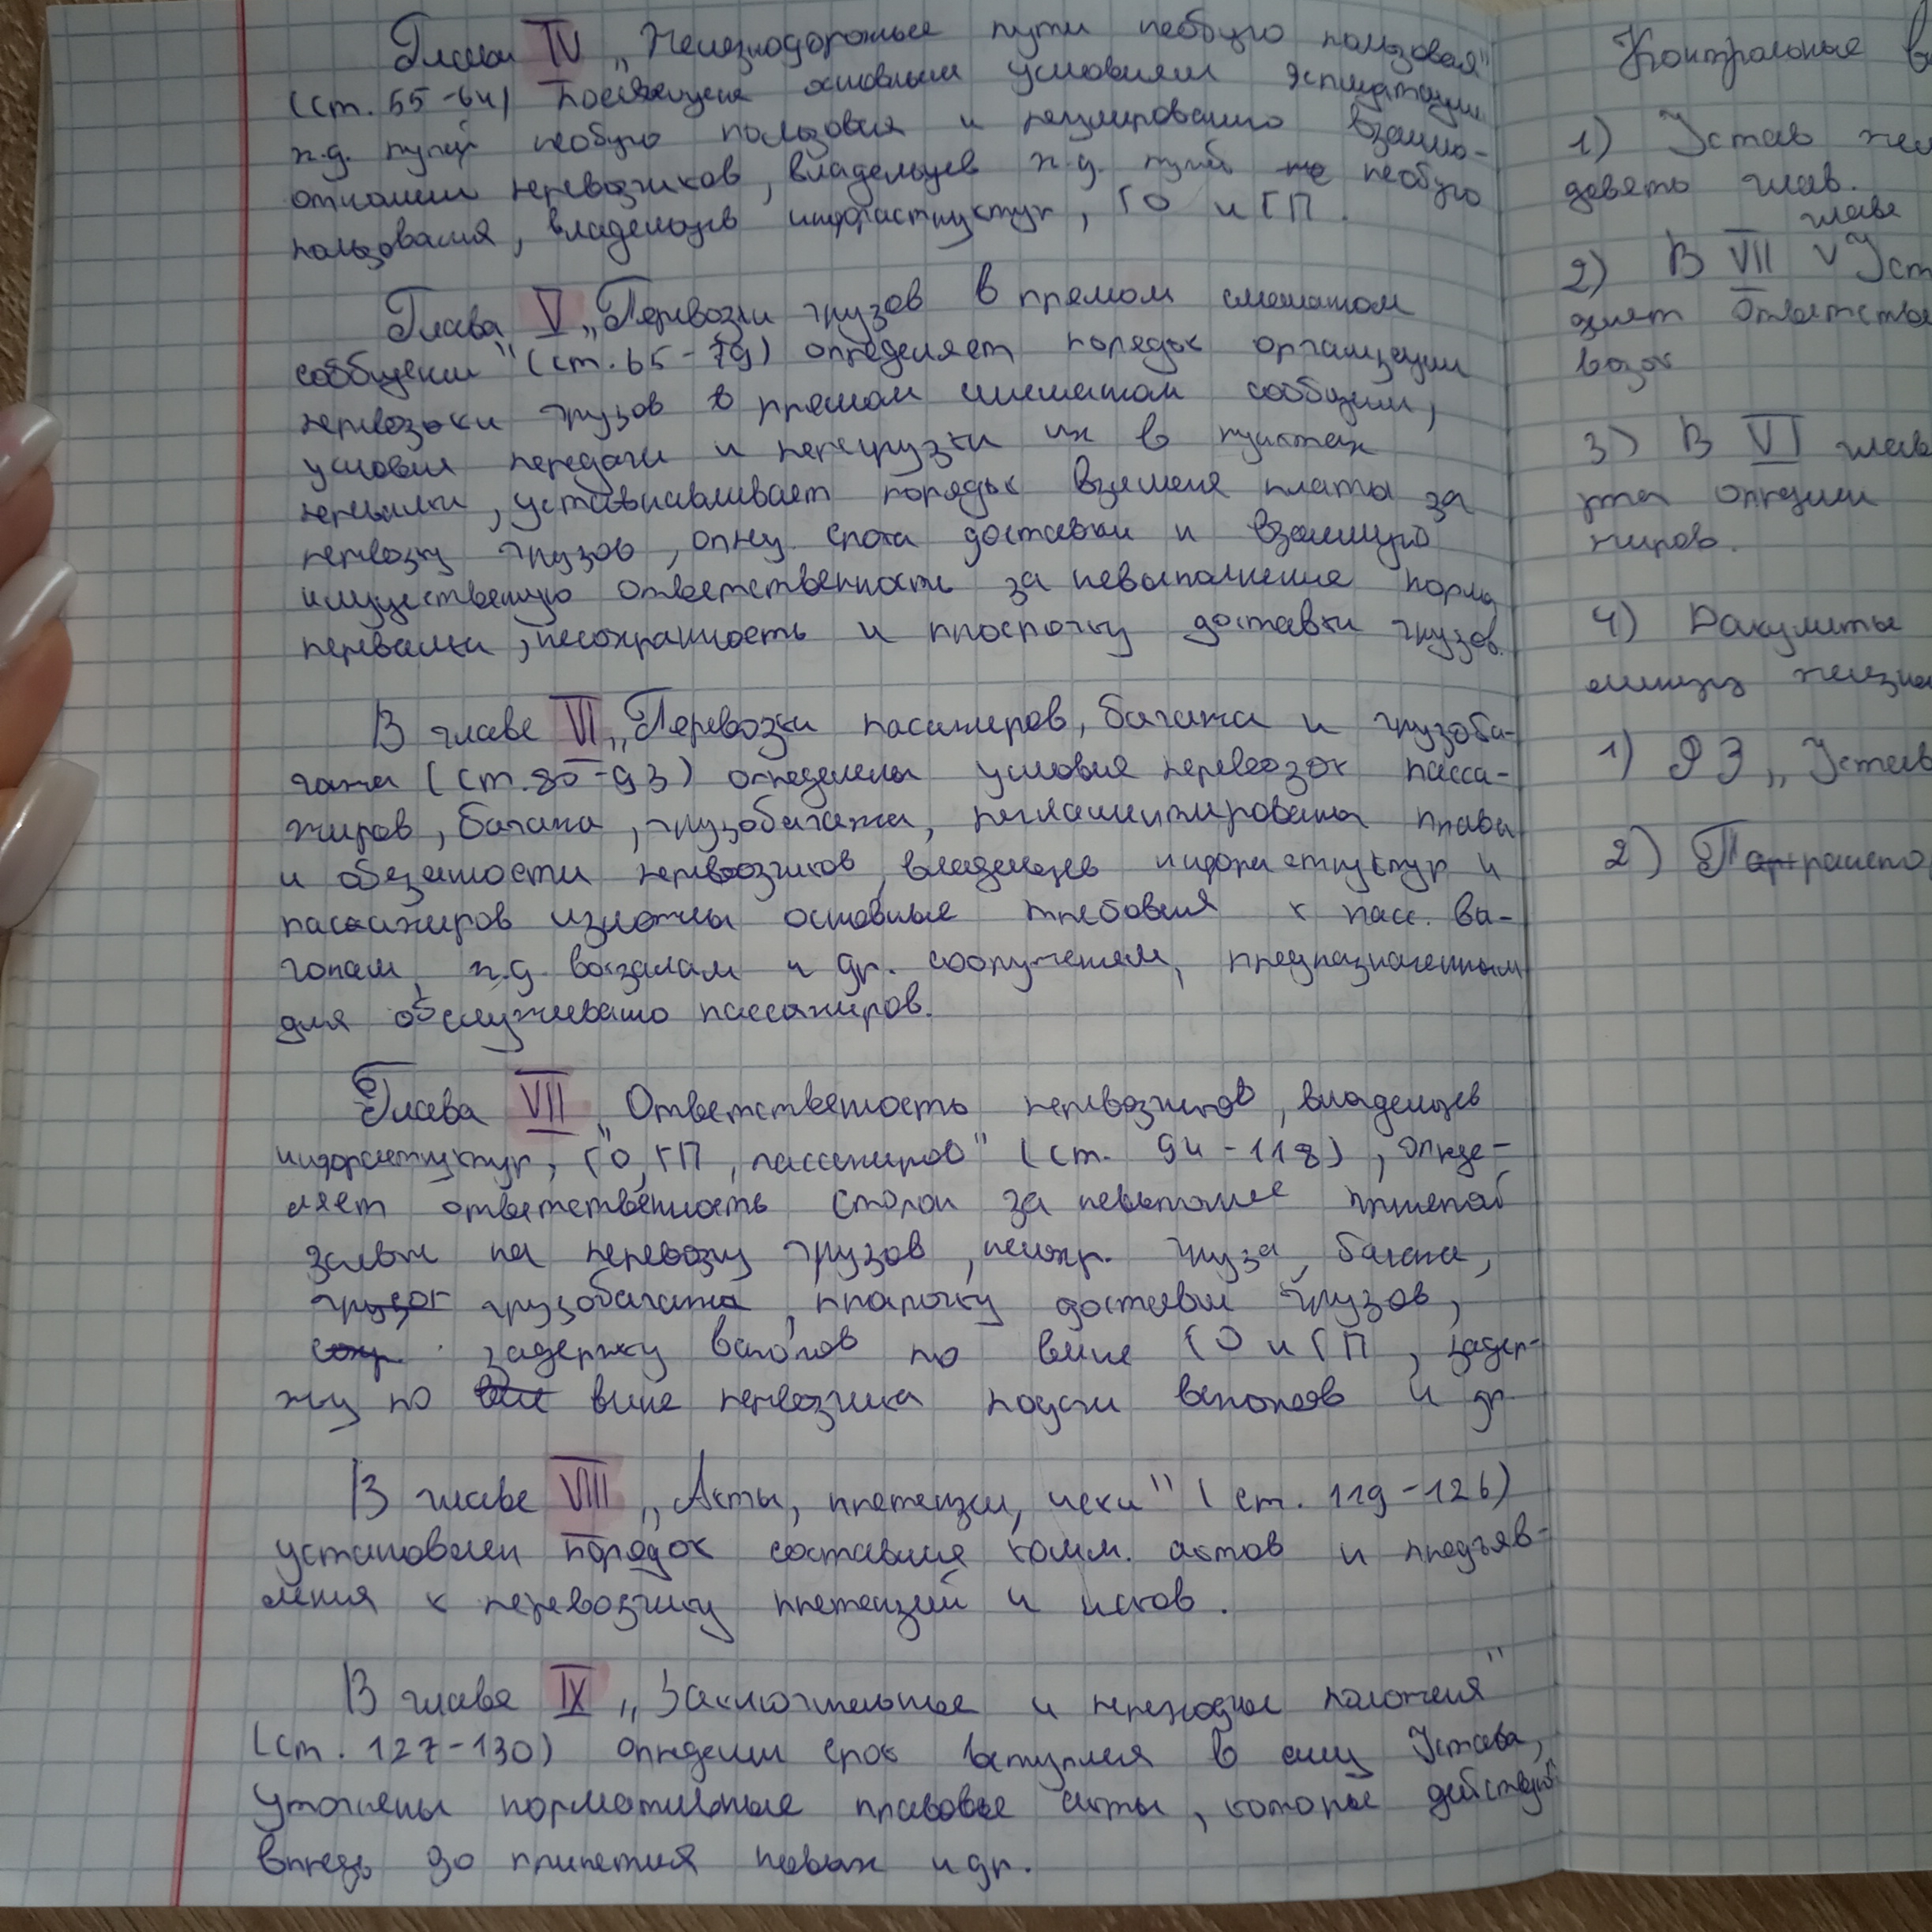 Глава IV „Железнодорожные пути необщго пользовая"
(ст. 55-64) посвящена основным условиям
ж.д. путей необщго пользовая и регулировано взаимо-
отношен перевозчиков, владельцев ж.д. путей не необщго
пользования, владельцев инфраструктур, ГО и ГП.
Глава V „Перевозки грузов в прямом смешатом
сообщении" (ст. 65-79) определяет порядок организации
перевозоки грузов в прямом смешатом сообщении,
условия передачи и перегрузки их в пунктах
перевалки, устанавливает порядок взимания платы за
перевозку грузов, срока доставки и взаимную
имущественную ответственность за невыполнение норма
перевалки, несохранность и просрочку доставки грузов.
В главе VI „Перевозки пасажиров, багажа и грузоба-
гажа (ст. 80-93) определены условия перевозок пасса-
жиров, багажа, грузобагажа, регламентированы права
и обязаности перевозчиков, владельцев инфраструктур и
пассажиров изложны основные требовая к пасс. ва-
гонам, ж.д. вокзалам и др. сооружениям, предназначенным
для обслуживано пассажиров.
Глава VII „Ответственность перевозчиков, владельцев
инфраструктур, ГО, ГП, пассажиров" (ст. 94-118), опреде-
ляет ответственность сторон за принетой
заявки на перевозку грузов, несохр. груза, багажа,
грузог грузобагажа, пророчку доставки грузов,
сохр. задержку вагонов по вине ГО и ГП, задер-
жку по вине перевозчика подачи вагонов и др
В главе VIII „Акты, претензии, иски" (ст. 119-126)
установлен порядок составлие комм. актов и предъяв-
ления к перевозчику претензий и исков.
В главе IX „Заключительные и переходые положения"
(ст. 127-130) определен срок вступлея в силу Устава,
уточнены нормативные правовые акты, которые действуют
впредь до принетия новых и др.
Контрольные в
1) Устав жел
девять глав.
главе
2) В VII V Уст
деляет ответстве
возок
3) В VI глав
жиров.
4) Документы
1) ФЗ „Устав
2)